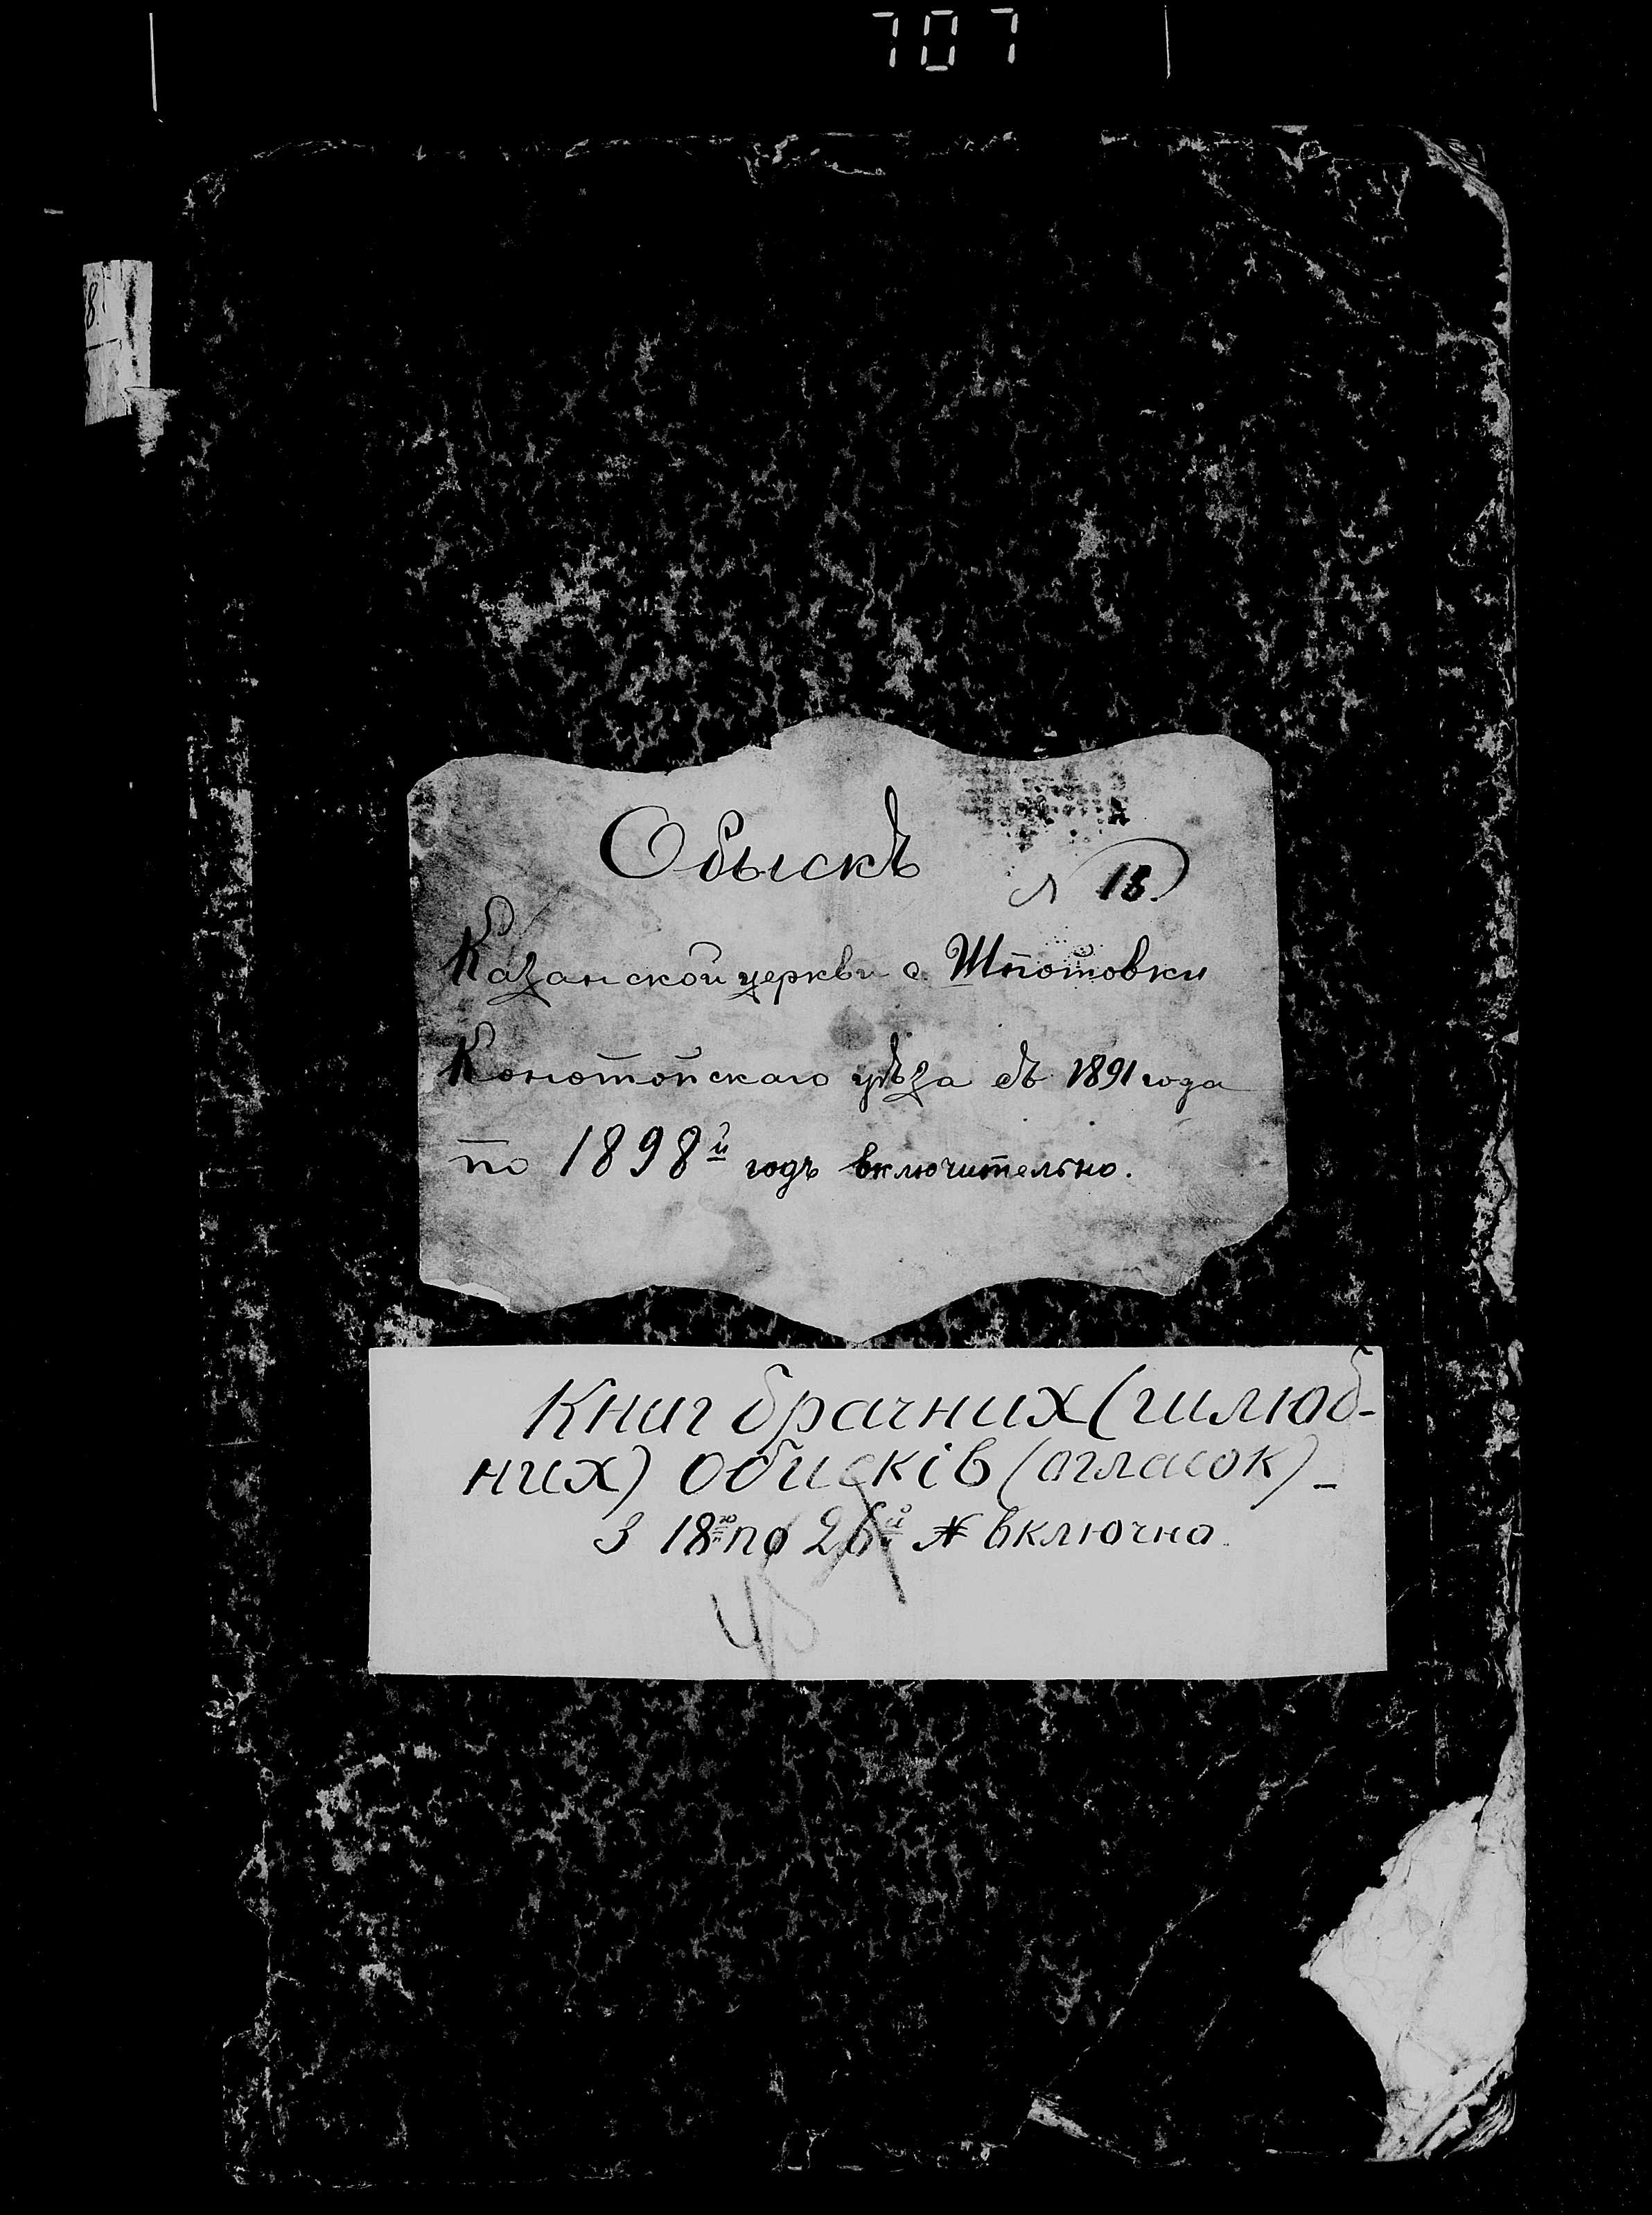 707
8.
Обыскъ
N 18.
Казанской церкви с. Шпотовки
Конотопскаго уѣза съ 1891 года
по 1898й годъ включительно.
Книг брачних (шлюб-
них) обисків (огласок) -
З 18го по 26й № включно.
45